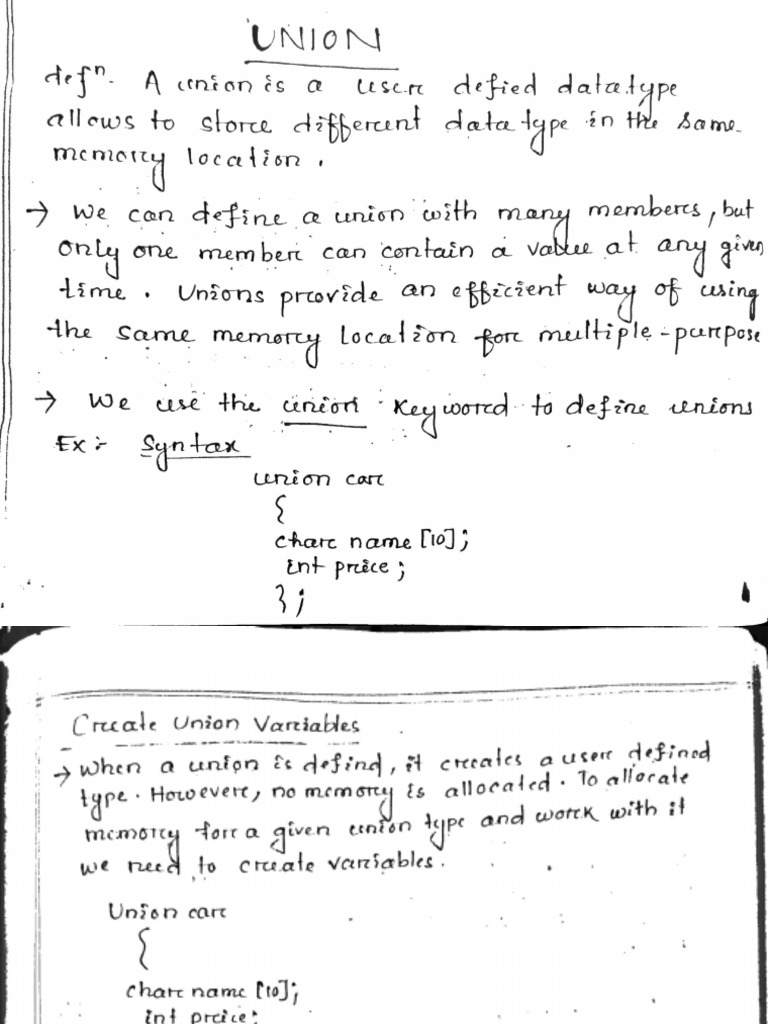 UNION
defn. A union is a user defied datatype
allows to store different data type in the same
memory location.
→ We can define a union with many members, but
only one member can contain a value at any given
time. Unions provide an efficient way of using
the same memory location for multiple-purpose
→ We use the union keyword to define unions
Ex:- Syntax
union car
{
char name [10];
int price;
};
Create Union Variables
→ When a union is defind, it creates a user defined
type. However, no memory is allocated. To allocate
memory for a given union type and work with it
we need to create variables.
Union car
{
char name [10];
int price;